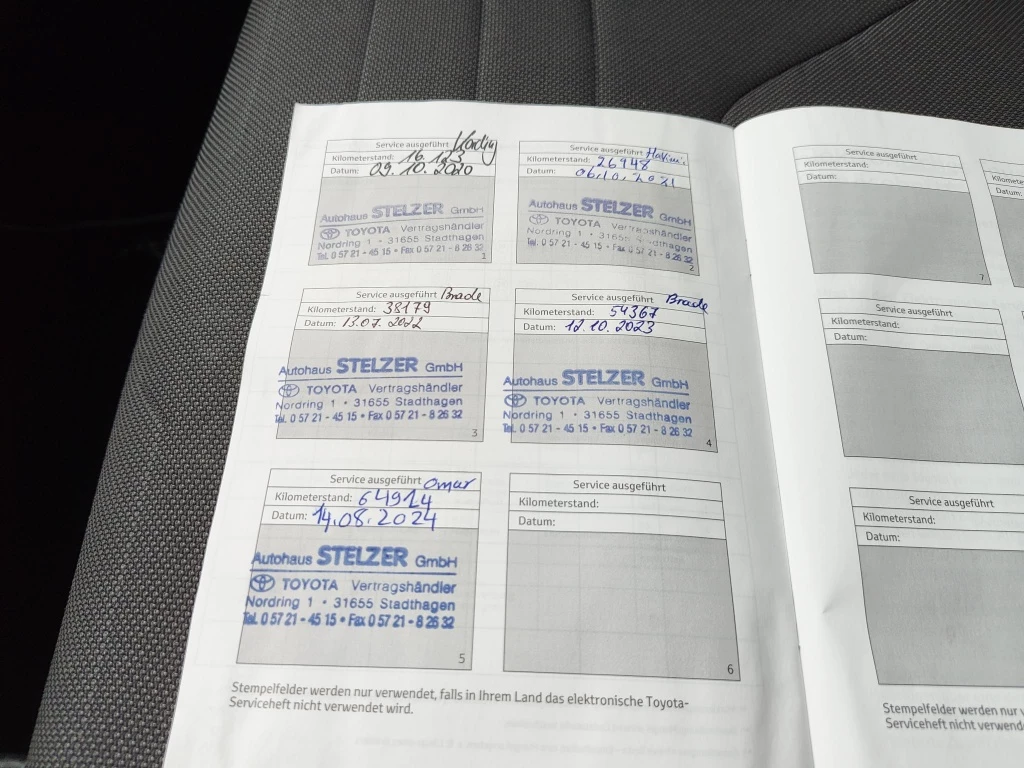 Service ausgeführt
Kilometerstand: 16.123
Datum: 09.10.2020
Autohaus STELZER GmbH
TOYOTA Vertragshändler
Nordring 1 • 31655 Stadthagen
Tel. 0 57 21 - 45 15 • Fax 0 57 21 - 8 26 32
1
Service ausgeführt
Kilometerstand: 26948
Datum: 06.10.2021
Autohaus STELZER GmbH
TOYOTA Vertragshändler
Nordring 1 • 31655 Stadthagen
Tel. 0 57 21 - 45 15 • Fax 0 57 21 - 8 26 32
2
Service ausgeführt Brade
Kilometerstand: 38179
Datum: 13.07.2022
Autohaus STELZER GmbH
TOYOTA Vertragshändler
Nordring 1 • 31655 Stadthagen
Tel. 0 57 21 - 45 15 • Fax 0 57 21 - 8 26 32
3
Service ausgeführt Brade
Kilometerstand: 54367
Datum: 12.10.2023
Autohaus STELZER GmbH
TOYOTA Vertragshändler
Nordring 1 • 31655 Stadthagen
Tel. 0 57 21 - 45 15 • Fax 0 57 21 - 8 26 32
4
Service ausgeführt Omar
Kilometerstand: 64914
Datum: 14.08.2024
Autohaus STELZER GmbH
TOYOTA Vertragshändler
Nordring 1 • 31655 Stadthagen
Tel. 0 57 21 - 45 15 • Fax 0 57 21 - 8 26 32
5
Service ausgeführt
Kilometerstand:
Datum:
6
Stempelfelder werden nur verwendet, falls in Ihrem Land das elektronische Toyota-
Serviceheft nicht verwendet wird.
Service ausgeführt
Kilometerstand:
Datum:
7
Service ausgeführt
Kilometerstand:
Datum:
Service ausgeführt
Kilometerstand:
Datum:
Stempelfelder werden nur
Serviceheft nicht